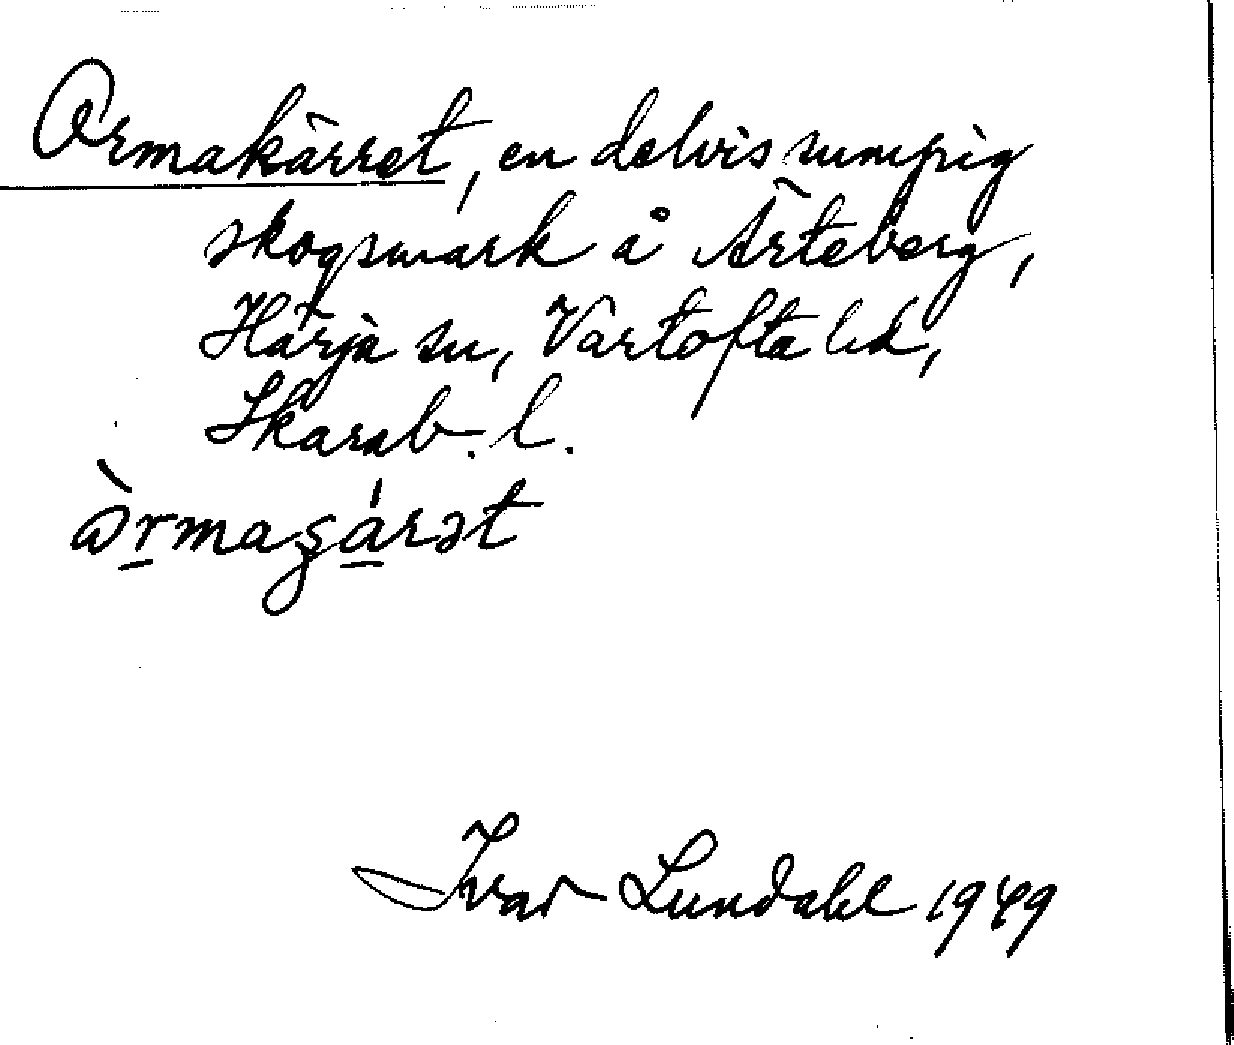 Ormakärret, en delvis sumpig
skogsmark å Ärteberg,
Härja sn, Vartofta hd,
Skarab. l.
Ivar Lundahl 1949